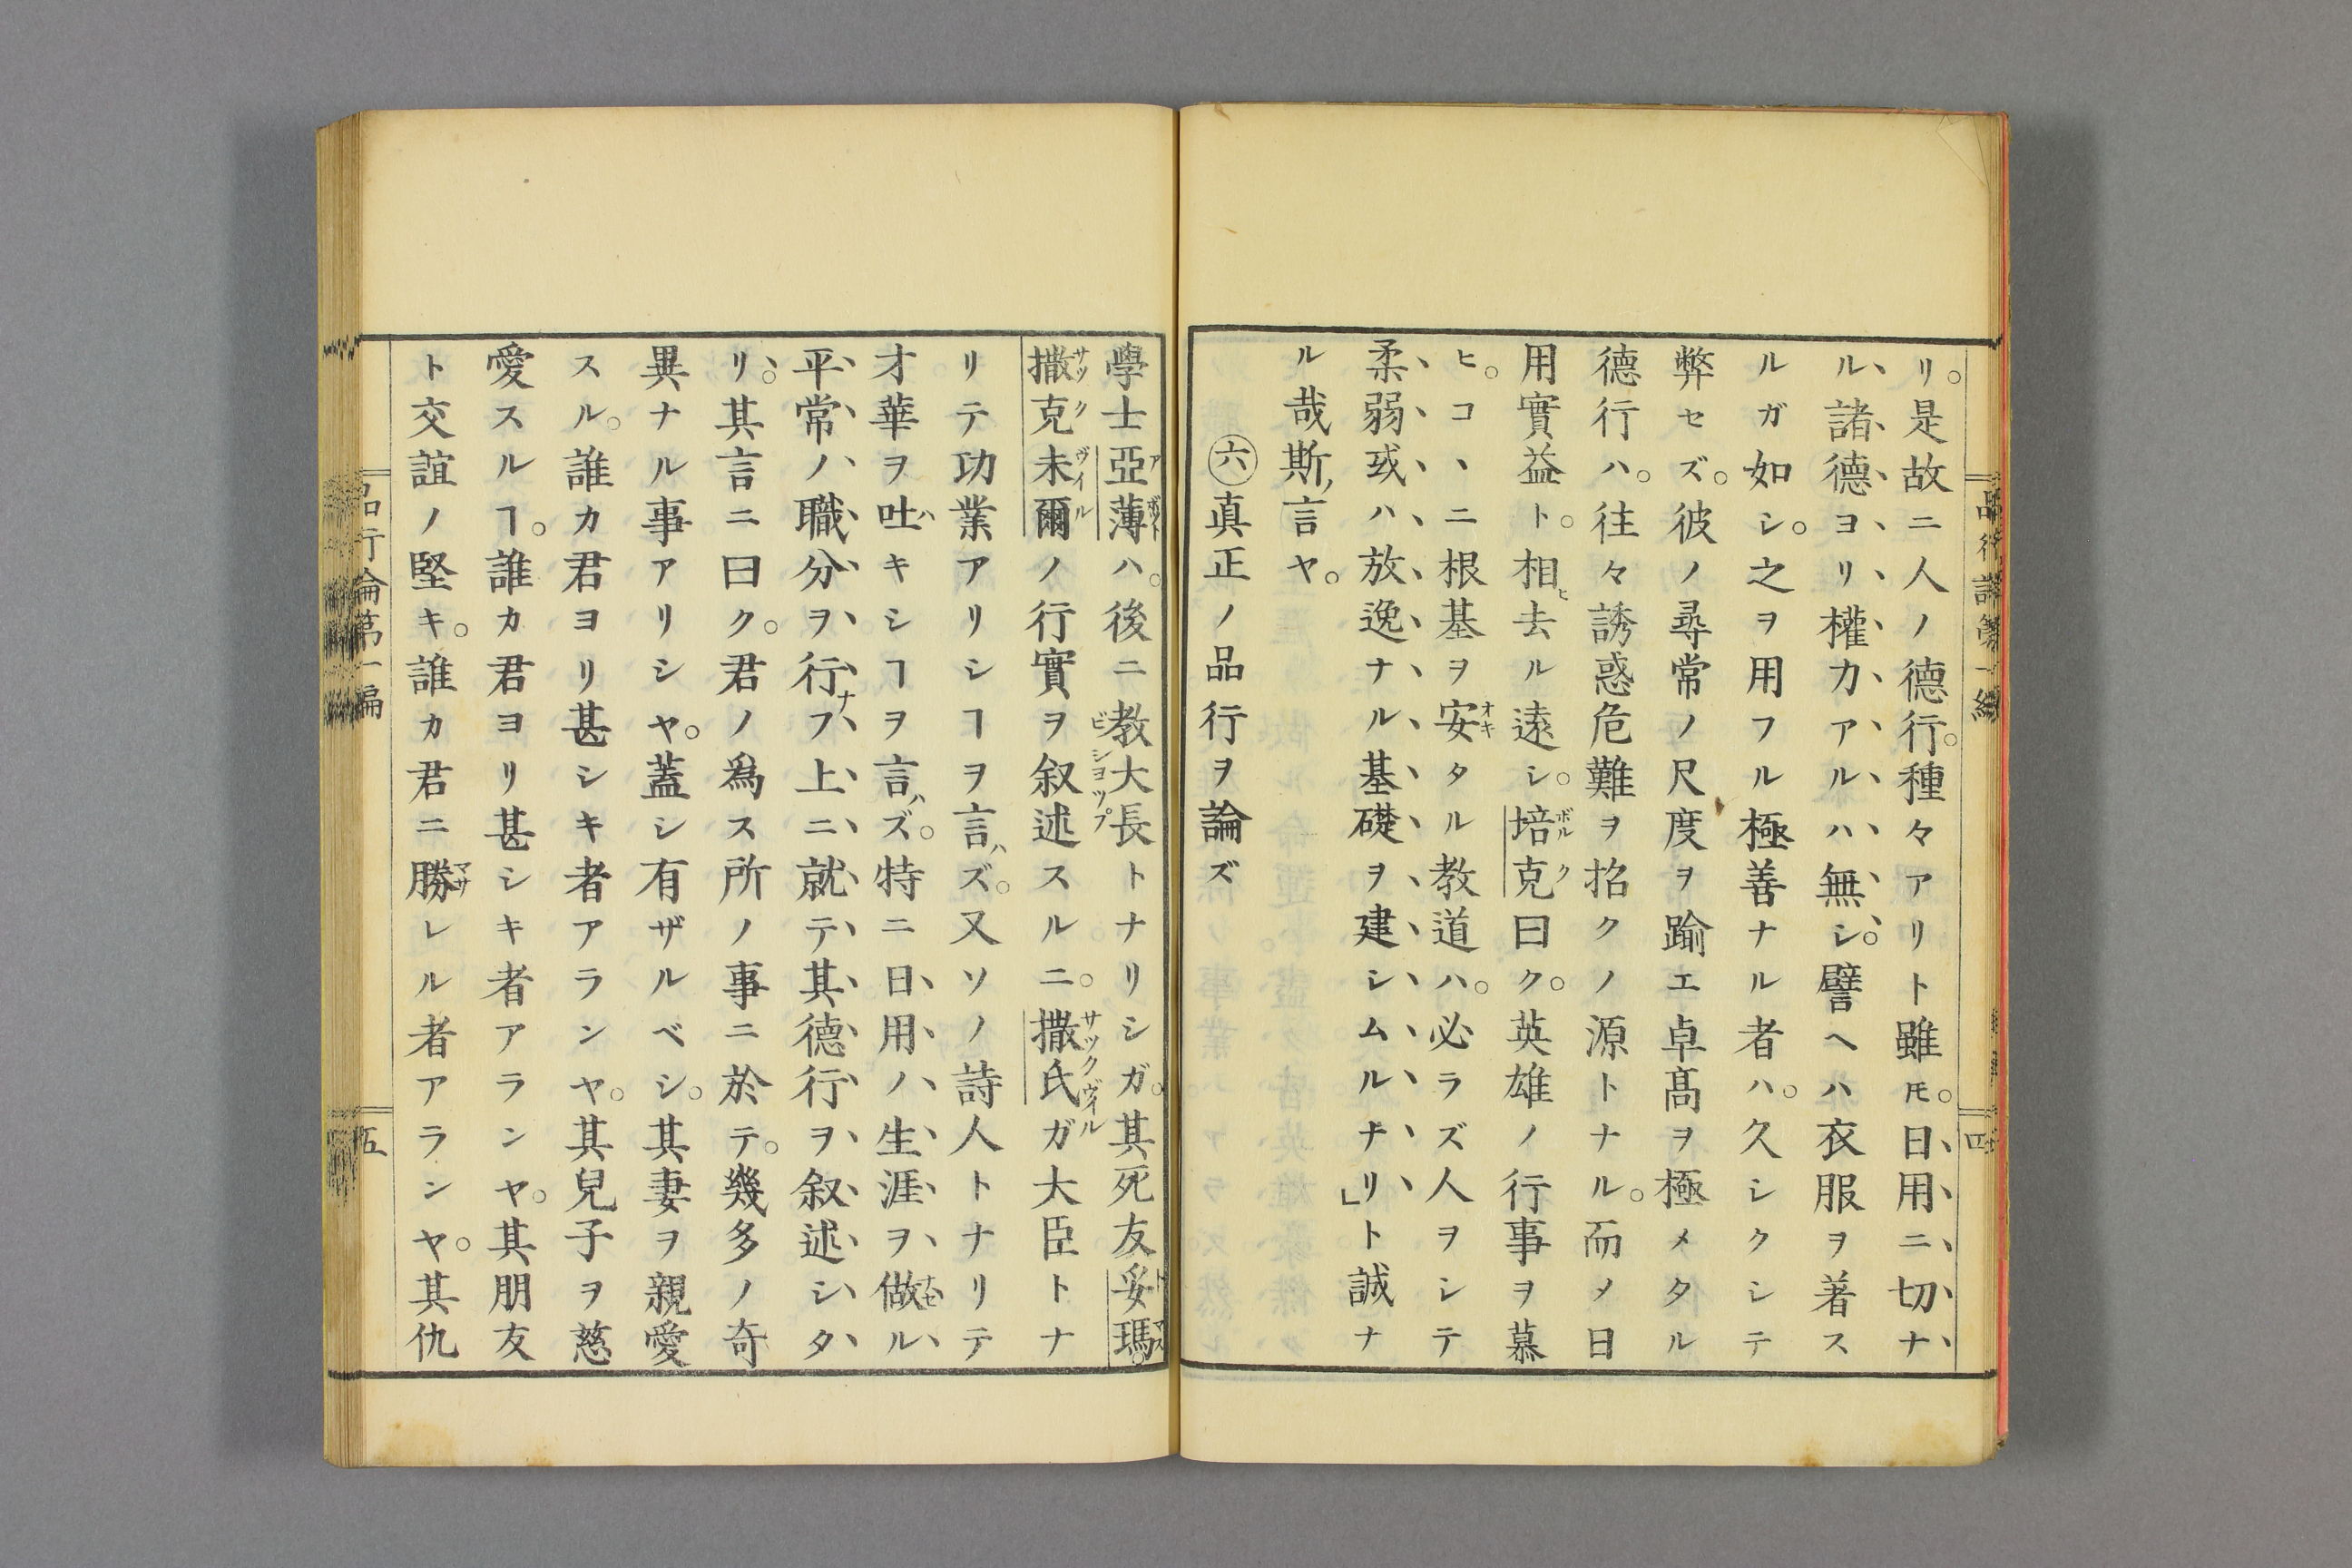 リ。是故ニ人ノ德行。種々アリト雖𪜈。日用ニ切ナ
ル諸德ヨリ權力アルハ無シ。譬ヘハ衣服ヲ着ス
ルガ如シ。之ヲ用フル極善ナル者ハ。久シクシテ
弊セズ。彼ノ尋常ノ尺度ヲ踰エ卓髙ヲ極メタル
德行ハ。往々誘惑危難ヲ招クノ源トナル。而メ日
用實益ト。相去ル遠シ。培克曰ク。英雄ノ行事ヲ慕
ヒ。コヽニ根基ヲ安タル教道ハ。必ラズ人ヲシテ
柔弱或ハ放逸ナル基礎ヲ建シムルナリ」ト誠ナ
ル哉斯言ヤ。
㊅真正ノ品行ヲ論ズ
學士亞薄ハ。後ニ教大長トナリシガ。其死友妥瑪。
撒克未爾ノ行實ヲ叙述スルニ。撒氏ガ大臣トナ
リテ功業アリシヿヲ言ハズ。又ソノ詩人トナリテ
才華ヲ吐キシヿヲ言ハズ。特ニ日用ノ生涯ヲ做ル
平常ノ職分ヲ行フ上ニ就テ其德行ヲ叙述シタ
リ。其言ニ曰ク。君ノ爲ス所ノ事ニ於テ。幾多ノ奇
異ナル事アリシヤ。蓋シ有ザルベシ。其妻ヲ親愛
スル。誰カ君ヨリ甚シキ者アランヤ。其兒子ヲ慈
愛スルヿ。誰カ君ヨリ甚シキ者アランヤ。其朋友
ト交誼ノ堅キ。誰カ君ニ勝レル者アランヤ。其仇
品行論第一編
五